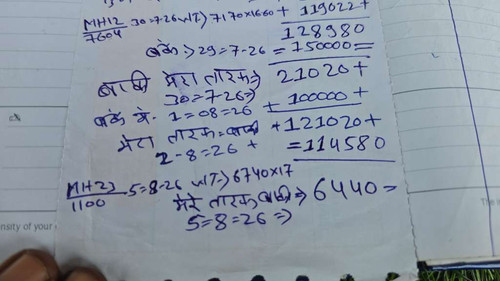 MH12 30=7-26 w(T-) 7170x1660 + 119022+
7604 128980
बँक > 29=7-26 = 150000=
बाकी मेरा तारफ => 21020+
30=7-26=>
बँक से. 1=08=26 + 100000+
मेरा तारफ=बाकी +121020+
2-8=26 + =114580
MH23 5=8-26 w(T-) 6740x17
1100 मेरे तारफ बाकी => 6440=
5=8=26 =>
nsity of your